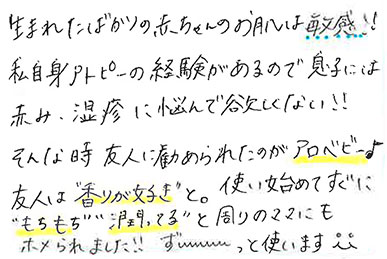 生まれたばかりの赤ちゃんのお肌は敏感!!
私自身アトピーの経験があるので息子には
赤み、湿疹に悩んで欲しくない!!
そんな時友人に勧められたのがアロベビー♪
友人は"香りが好き"と。使い始めてすぐに
"もちもち""潤ってる"と周りのママにも
ホメられました!! ずーーーっと使います